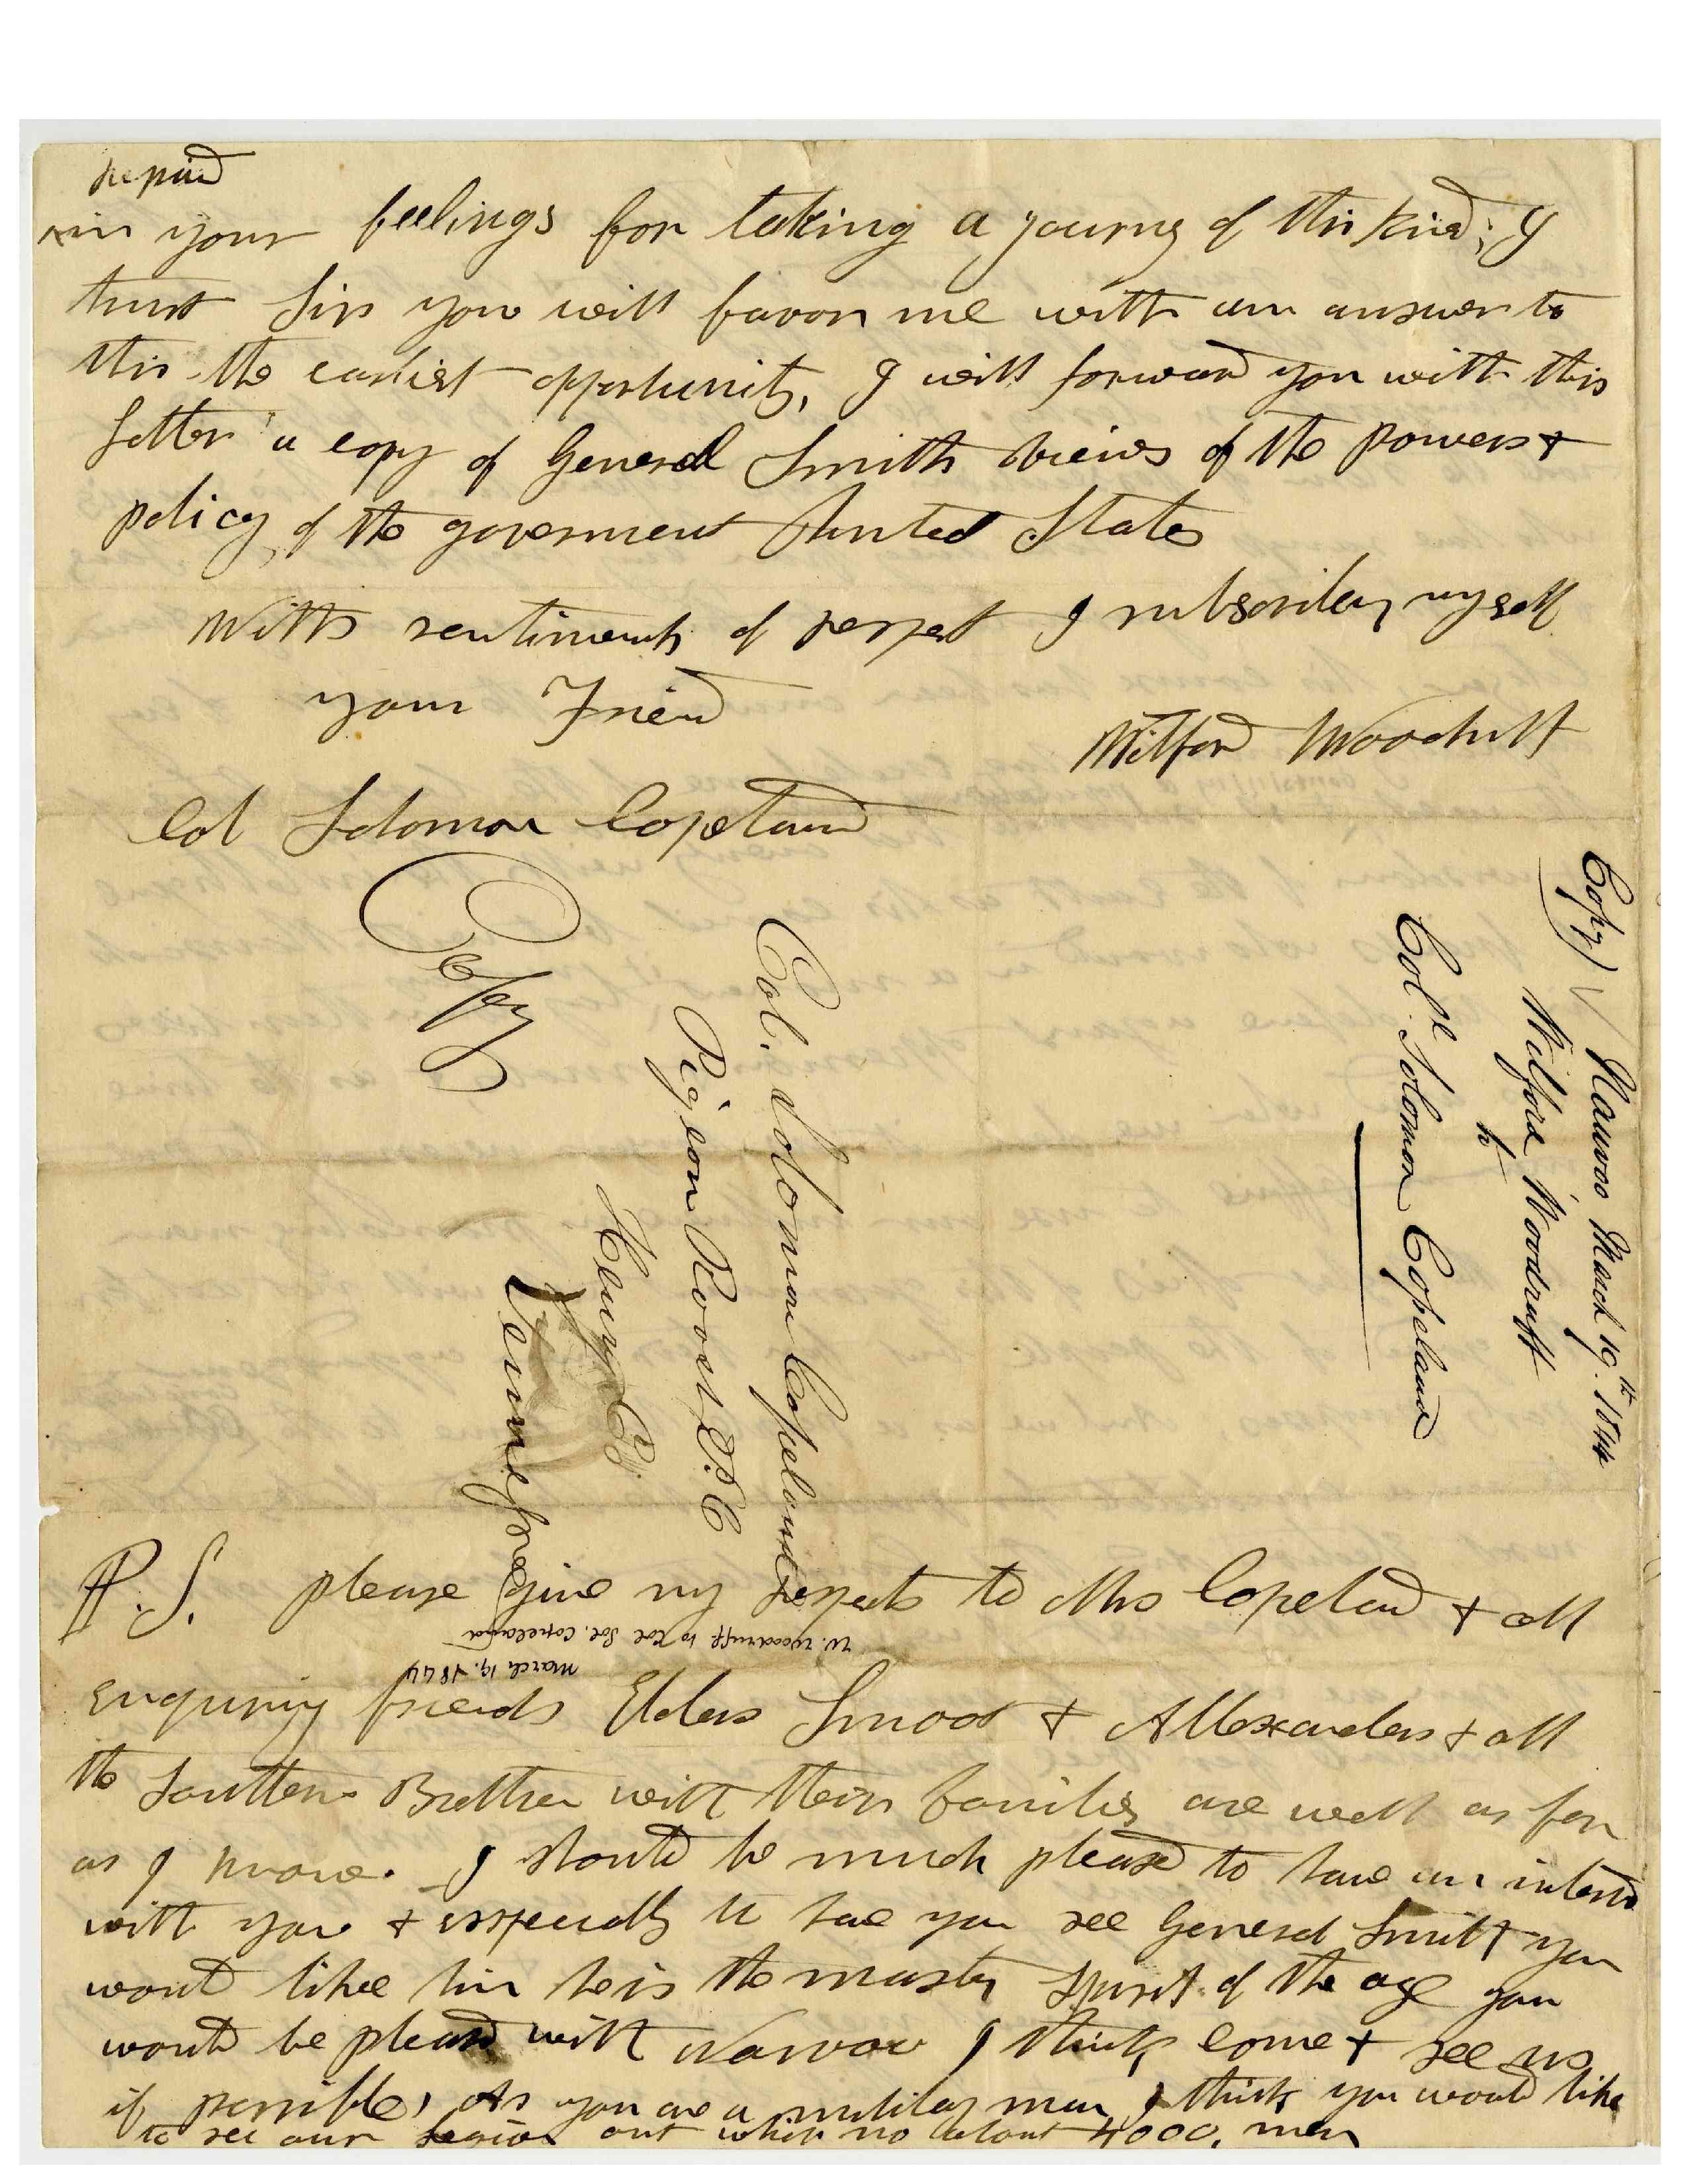 repaid
in your feelings for taking a journy of this kind; I
trust Sir you will favor me with an answer to
this the earliest opportunity, I will forward you with this
letter a copy of General Smith views of the powers &
policy of the goverment United States
With sentiments of respect I subscribe myself
your Friend
Wilford Woodruff
Col Solomon Copeland
Copy
Col. Solomon Copeland
Pigeon Roost P.C
Henry Co
Tennessee
Copy) Nauvoo March 19th. 1844
Wilford Woodruff
to
Col Solomon Copeland
P.S. please give my respects to Mrs Copeland & all
W. Woodruff to Col Sol. Copeland
March 19. 1844
enquiring friends Elders Smoot & Allexanders & all
the Southern Brethren with their families are well as far
as I know. I should be much pleased to have an
with you & especially to have you see General Smith you
would like him he is the master spirit of the age you
would be pleased with Nauvoo I think come & see us
if possible, As you are a military man I think you would like
to see our legion out which no about 4000, men